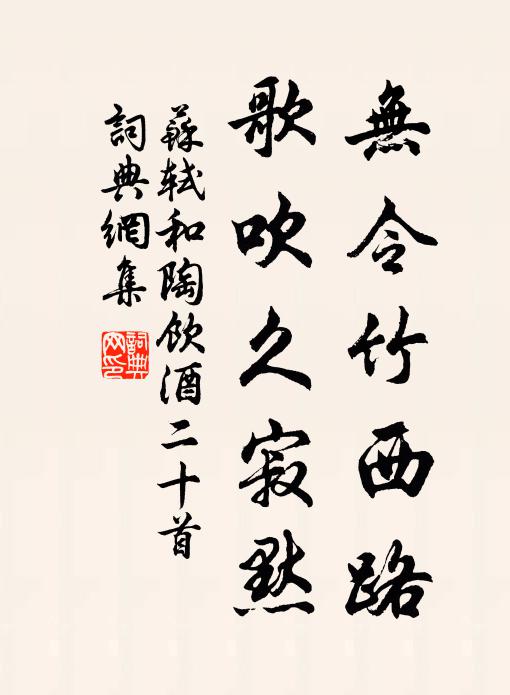 無令竹西路
歌吹久寂默
蘇軾和陶飲酒二十首
詞典網集
詞典网印